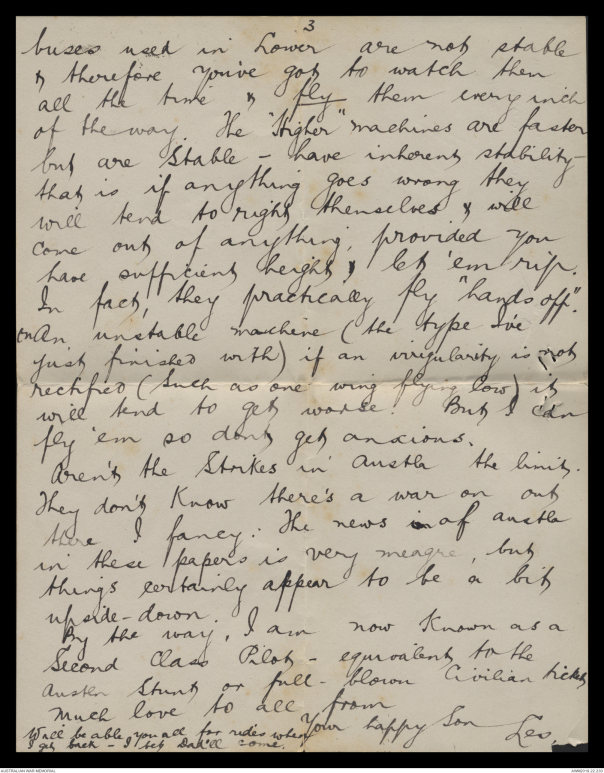 3
buses used in Lower are not stable
& therefore you've got to watch them
all the time & fly them every inch
of the way. The "Higher" machines are faster
but are Stable - have inherent stability -
that is if anything goes wrong they
will tend to right themselves & will
come out of anything, provided you
have sufficient height & let 'em rip.
In fact, they practically fly "hands off".
On an unstable machine (the type I've
just finished with) if an irregularity is not
rectified (such as one wing flying low) it
will tend to get worse. But I can
fly 'em so dont get anxious.
Aren't the Strikes in Austla the limit.
They don't Know there's a war on out
there I fancy. The news of austla
in these papers is very meagre, but
things certainly appear to be a bit
upside-down.
By the way, I am now Known as a
Second Class Pilot - equivalent to the
Austln Stunt or full-blown Civilian ticket
Much love to all from
Your happy Son
Leo.
Will be able you all for rides when
I get back - I bet Dad'll come.
AUSTRALIAN WAR MEMORIAL